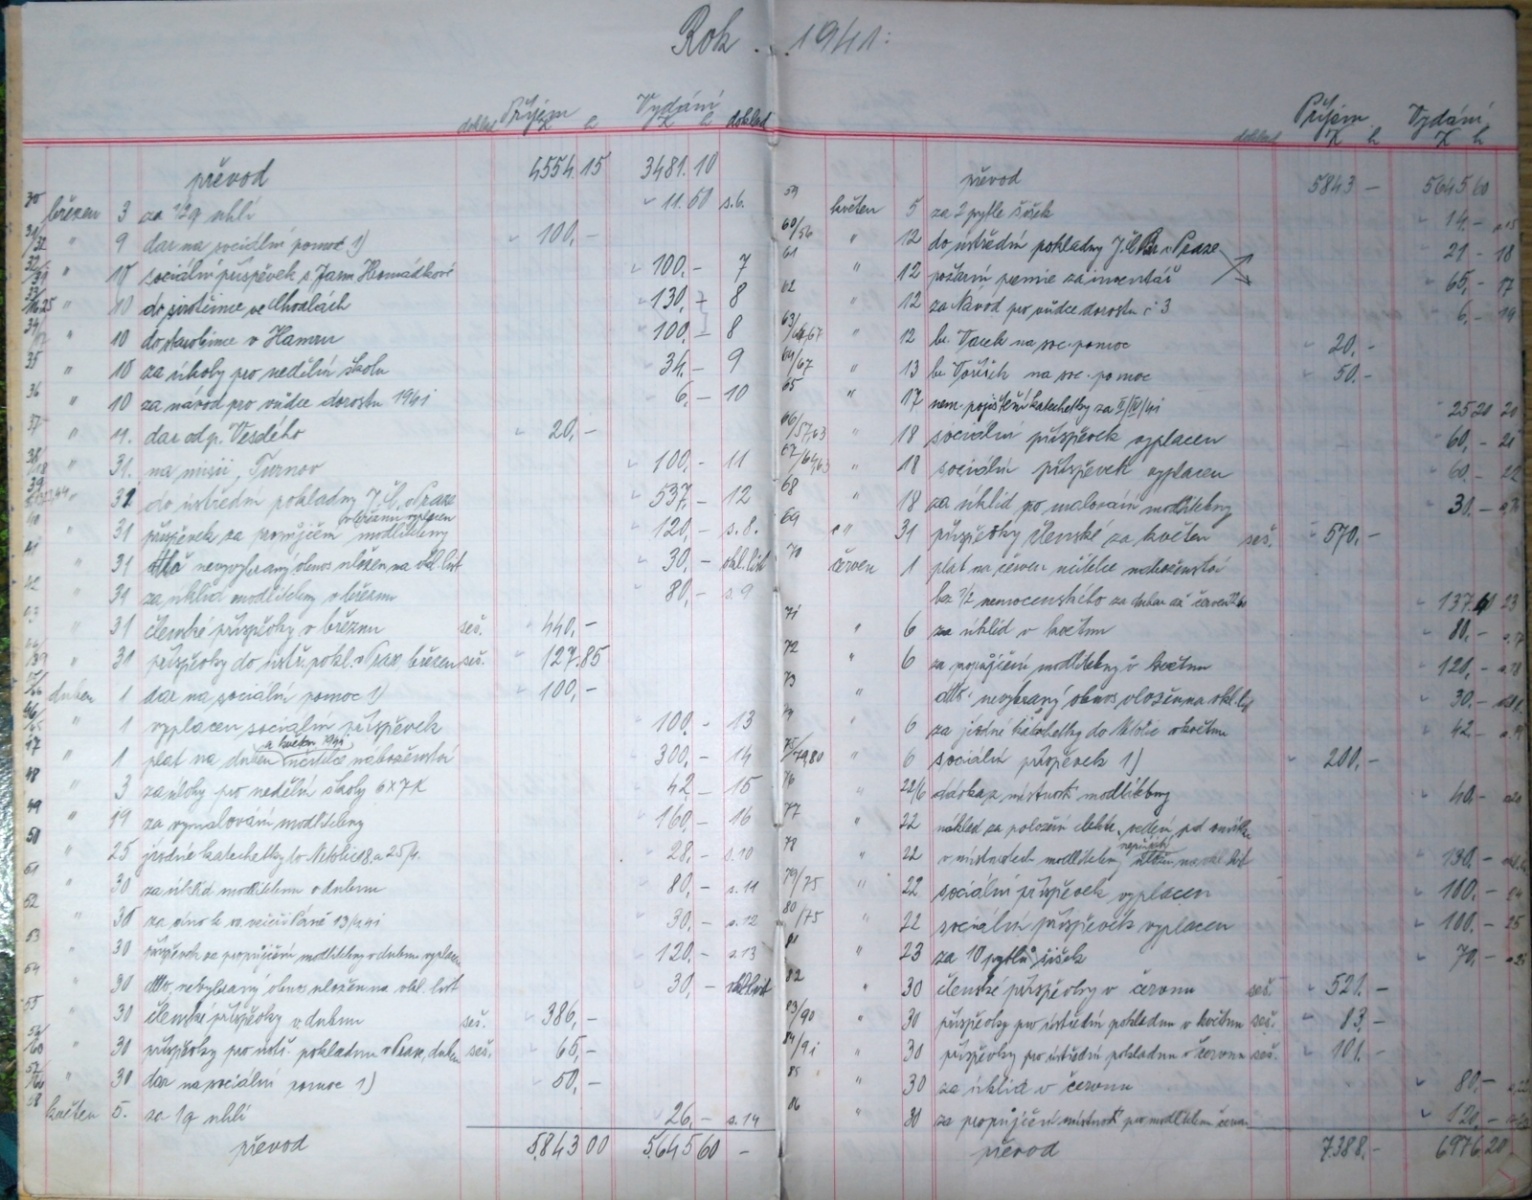 Rok 1941.
doklad Příjem K h Vydání K h doklad
převod 4554.15 3481.10
30 březen 3 za 1/2 q uhlí 11.60 s.6.
" 9 dar na sociální pomoc 1) 100,-
" sociální příspěvek s. Jarm. Hromádkové 100.- 7
" 10 do sirotčince ve Chvalech 130.- 8
" 10 do starobince v Hamru 100.- 8
35 " 10 za úkoly pro nedělní školu 34.- 9
36 " 10 za návod pro vůdce dorostu 1941 6.- 10
37 " dar od p. Veselého 20,-
38 " 31. na misii, Turnov 100.- 11
39 " 31 do ústřední pokladny J.Č. v Praze 537.- 12
40 " 31 příspěvek za pronájem modlitebny v březnu vyplacen 120,- s.8.
41 " 31 dtto nevybraný obnos uložen na vkl. list 30,- vkl.list
42 " 31 za úklid modlitebny v březnu 80,- s.9
43 " 31 členské příspěvky v březnu seš. 440.-
" 30 příspěvky do ústř. pokl. v Praze, březen seš. 127.85
duben 1 dar na sociální pomoc 1) 100,-
46 " 1 vyplacen sociální příspěvek 100.- 13
47 " 1 plat na duben a květen 1941 učitelce náboženství 300,- 14
48 " 3 za úlohy pro nedělní školy 6x7K 42.- 15
49 " 19 za vymalování modlitebny 160,- 16
50 " 25 jízdné katechetky do Netolic 8. a 25/4. 28,- s.10
51 " 30 za úklid modlitebny v dubnu 80,- s.11
52 " 30 za víno k sv. večeři Páně 13/4 41 30,- s.12
53 " 30 příspěvek za propůjčení modlitebny v dubnu vyplacen 120.- s.13
54 " 30 dtto, nevybraný obnos uložen na vkl. list 30,- vkl.list
55 " 30 členské příspěvky v dubnu seš. 386,-
56 " 30 příspěvky pro ústř. pokladnu v Praze, duben seš. 65,-
57 " 30 dar na sociální pomoc 1) 50,-
58 květen 5. za 1q uhlí 26,- s.14
převod 5.843 00 5.645 60 -
doklad Příjem K h Vydání K h
převod 5843 - 5645 60
59 květen 5 za 2 pytle šišek 14.- s.15
60/56 " 12 do ústřední pokladny J.Č.B. v Praze 21.- 18
61 " 12 požární premie za inventář 65,- 17
62 " 12 za Návod pro vůdce dorostu č 3 6.- 19
63 " 12 br. Vacek na soc. pomoc 20.-
64/67 " 13 br. Voříšek na soc. pomoc 50.-
65 " 17 nem. pojištění katechetky za III/IV/41 25.20 20
66/57,63 " 18 sociální příspěvek vyplacen 60,- 21
67/64,63 " 18 sociální příspěvek vyplacen 60.- 22
68 " 18 za úklid po malování modlitebny 30.-
69 " 31 příspěvky členské za květen seš. 570.-
70 červen 1 plat na červen učitelce náboženství
bez 1/2 nemocenského za duben až červen 137. 23
71 " 6 za úklid v květnu 80.-
72 " 6 za propůjčení modlitebny v květnu 120,-
73 " dtto nevybraný obnos vložen na vkl. list 30.-
74 " 6 za jízdné katechetky do Netolic v květnu 42.-
75/79,80 " 6 sociální příspěvek 1) 200.-
76 " 22/6 dávka z místností modlitebny 40.-
77 " 22 náklad za položení elektr. vedení pod omítku
78 " 22 v místnostech modlitebny 130.-
79/75 " 22 sociální příspěvek vyplacen 100.- 24
80/75 " 22 sociální příspěvek vyplacen 100.- 25
81 " 23 za 10 pytlů šišek 70,-
82 " 30 členské příspěvky v červnu seš. 521.-
83/90 " 30 příspěvky pro ústřední pokladnu v květnu seš. 83,-
84/91 " 30 příspěvky pro ústřední pokladnu v červnu seš. 101.-
85 " 30 za úklid v červnu 80,-
86 " 30 za propůjčení místností pro modlitebnu červen 120,-
převod 7.388,- 6.976.20